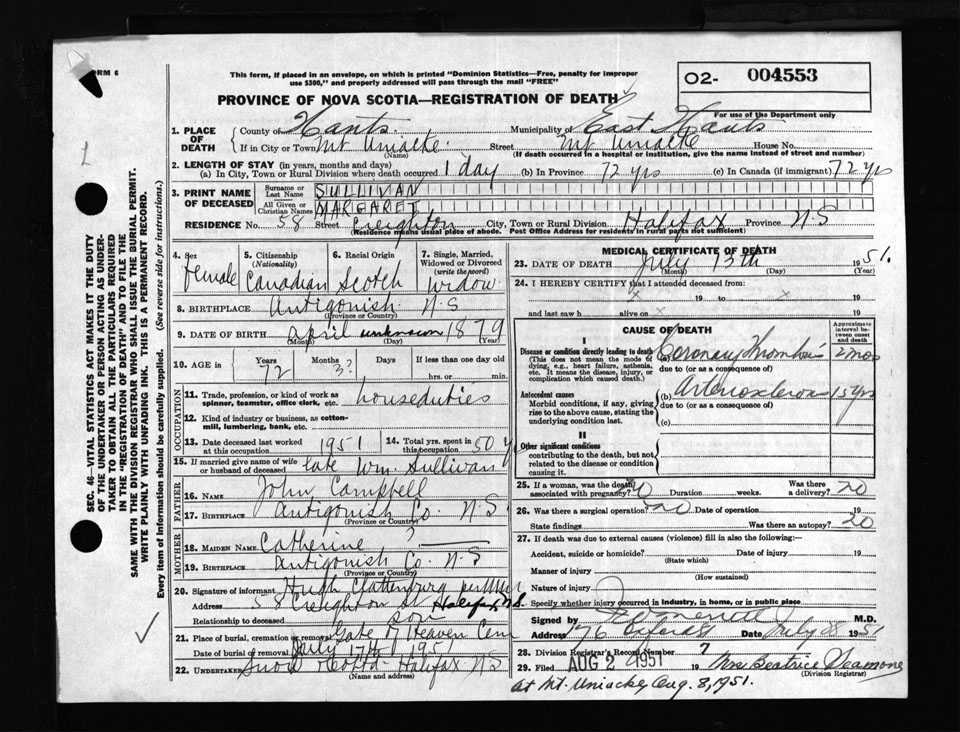 FORM 6
This form, if placed in an envelope, on which is printed "Dominion Statistics—Free, penalty for improper
use $300," and properly addressed will pass through the mail "FREE"
O2- 004553
For use of the Department only
PROVINCE OF NOVA SCOTIA—REGISTRATION OF DEATH
1. PLACE OF DEATH
County of Hants. Municipality of East Hants
If in City or Town Mt Uniacke. Street Mt Uniacke House No.
(Name) (If death occurred in a hospital or institution, give the name instead of street and number)
2. LENGTH OF STAY (in years, months and days)
(a) In City, Town or Rural Division where death occurred 1 day (b) In Province 72 yrs (c) In Canada (if immigrant) 72 yrs
3. PRINT NAME OF DECEASED
Surname or Last Name SULLIVAN
All Given or Christian Names MARGARET
RESIDENCE No. 58 Street Creighton City, Town or Rural Division Halifax Province N.S
(Residence means usual place of abode. Post Office Address for residents in rural parts not sufficient)
4. Sex Female
5. Citizenship (Nationality) Canadian
6. Racial Origin Scotch
7. Single, Married, Widowed or Divorced (write the word) Widow
8. BIRTHPLACE Antigonish N.S
(Province or Country)
9. DATE OF BIRTH April unknown 1879
(Month) (Day) (Year)
10. AGE Years 72 Months 3? Days If less than one day old
hrs. or min.
OCCUPATION
11. Trade, profession, or kind of work as spinner, teamster, office clerk, etc. houseduties
12. Kind of industry or business, as cotton-mill, lumbering, bank, etc.
13. Date deceased last worked at this occupation 1951
14. Total yrs. spent in this occupation 50 y
15. If married give name of wife or husband of deceased late Wm. Sullivan
FATHER
16. Name John Campbell
17. Birthplace Antigonish Co. N.S
(Province or Country)
MOTHER
18. MAIDEN NAME Catherine ?
19. BIRTHPLACE Antigonish Co. N-S
(Province or Country)
20. Signature of informant Hugh Clattenburg per
Address 58 Creighton St Halifax N.S.
Relationship to deceased son
21. Place of burial, cremation or removal Gate of Heaven Cem
Date of burial or removal July 17th 1951
22. UNDERTAKER Snow Halifax N.S
(Name and address)
MEDICAL CERTIFICATE OF DEATH
23. DATE OF DEATH July 13th 1951.
(Month) (Day)
24. I HEREBY CERTIFY that I attended deceased from:
x 19 to x 19
and last saw h alive on x 19
CAUSE OF DEATH
Approximate interval between onset and death
I
Disease or condition directly leading to death
(This does not mean the mode of dying, e.g., heart failure, asthenia, etc. It means the disease, injury, or complication which caused death.)
(a) Coronary Thrombosis 2 mos
due to (or as a consequence of)
Antecedent causes
Morbid conditions, if any, giving rise to the above cause, stating the underlying condition last.
(b) Arteriosclerosis 15 yrs
due to (or as a consequence of)
(c)
II
Other significant conditions
contributing to the death, but not related to the disease or condition causing it.
25. If a woman, was the death associated with pregnancy? no Duration weeks. Was there a delivery? no
26. Was there a surgical operation? no Date of operation 19
State findings Was there an autopsy? no
27. If death was due to external causes (violence) fill in also the following:—
Accident, suicide or homicide? Date of injury 19
(State which)
Manner of injury
(How sustained)
Nature of injury
Specify whether injury occurred in industry, in home, or in public place
Signed by M.D.
Address 176 Oxford St Date July 28 1951
28. Division Registrar's Record Number 7
29. Filed AUG 2 1951 19 Mrs Beatrice Seamone
(Division Registrar)
at Mt. Uniacke, Aug. 3, 1951.
SEC. 46—VITAL STATISTICS ACT MAKES IT THE DUTY
OF THE UNDERTAKER OR PERSON ACTING AS UNDER-
TAKER TO OBTAIN ALL THE PARTICULARS REQUIRED
IN THE "REGISTRATION OF DEATH" AND TO FILE THE
SAME WITH THE DIVISION REGISTRAR WHO SHALL ISSUE THE BURIAL PERMIT.
WRITE PLAINLY WITH UNFADING INK. THIS IS A PERMANENT RECORD.
Every item of information should be carefully supplied. (See reverse side for instructions.)